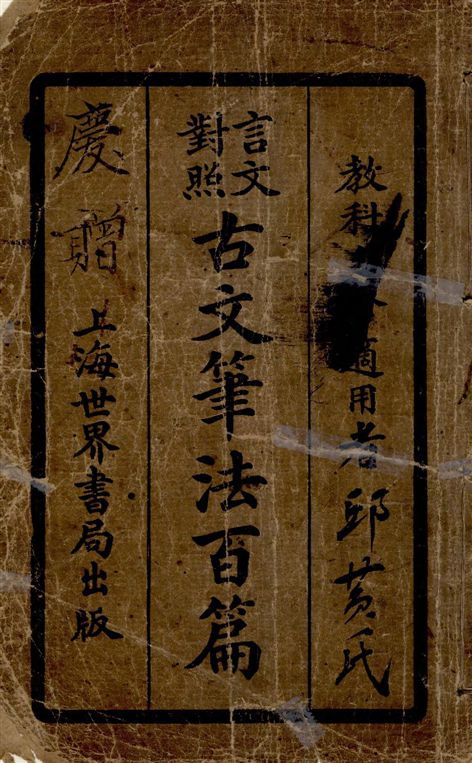 教科 適用者邱黃氏
言文
對照
古文筆法百篇
慶贈
上海世界書局出版